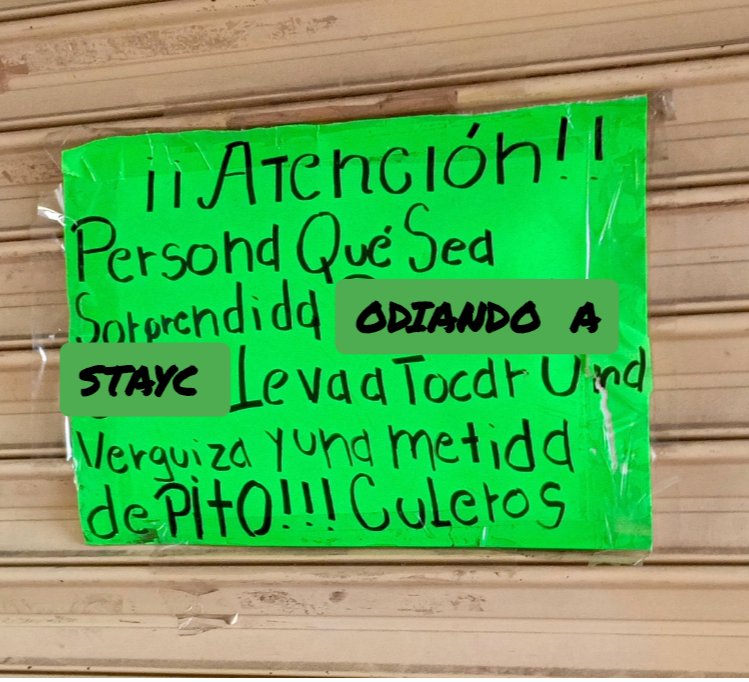 ¡¡Atención!!
Persona Qué Sea
Sorprendida ODIANDO A
STAYC Le va a Tocar Una
Verguiza y una metida
de Pito!!! Culeros